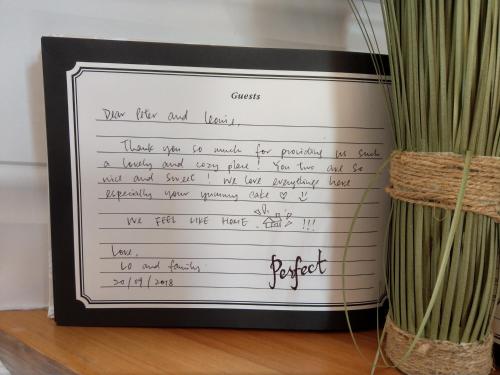 Guests
Dear Peter and Leonie,
Thank you so much for providing us such
a lovely and cozy place! You two are so
nice and sweet! We love everything here
especially your yummy cake ♡ :)
WE FEEL LIKE HOME !!!
Love,
Lo and family
20/09/2018
Perfect